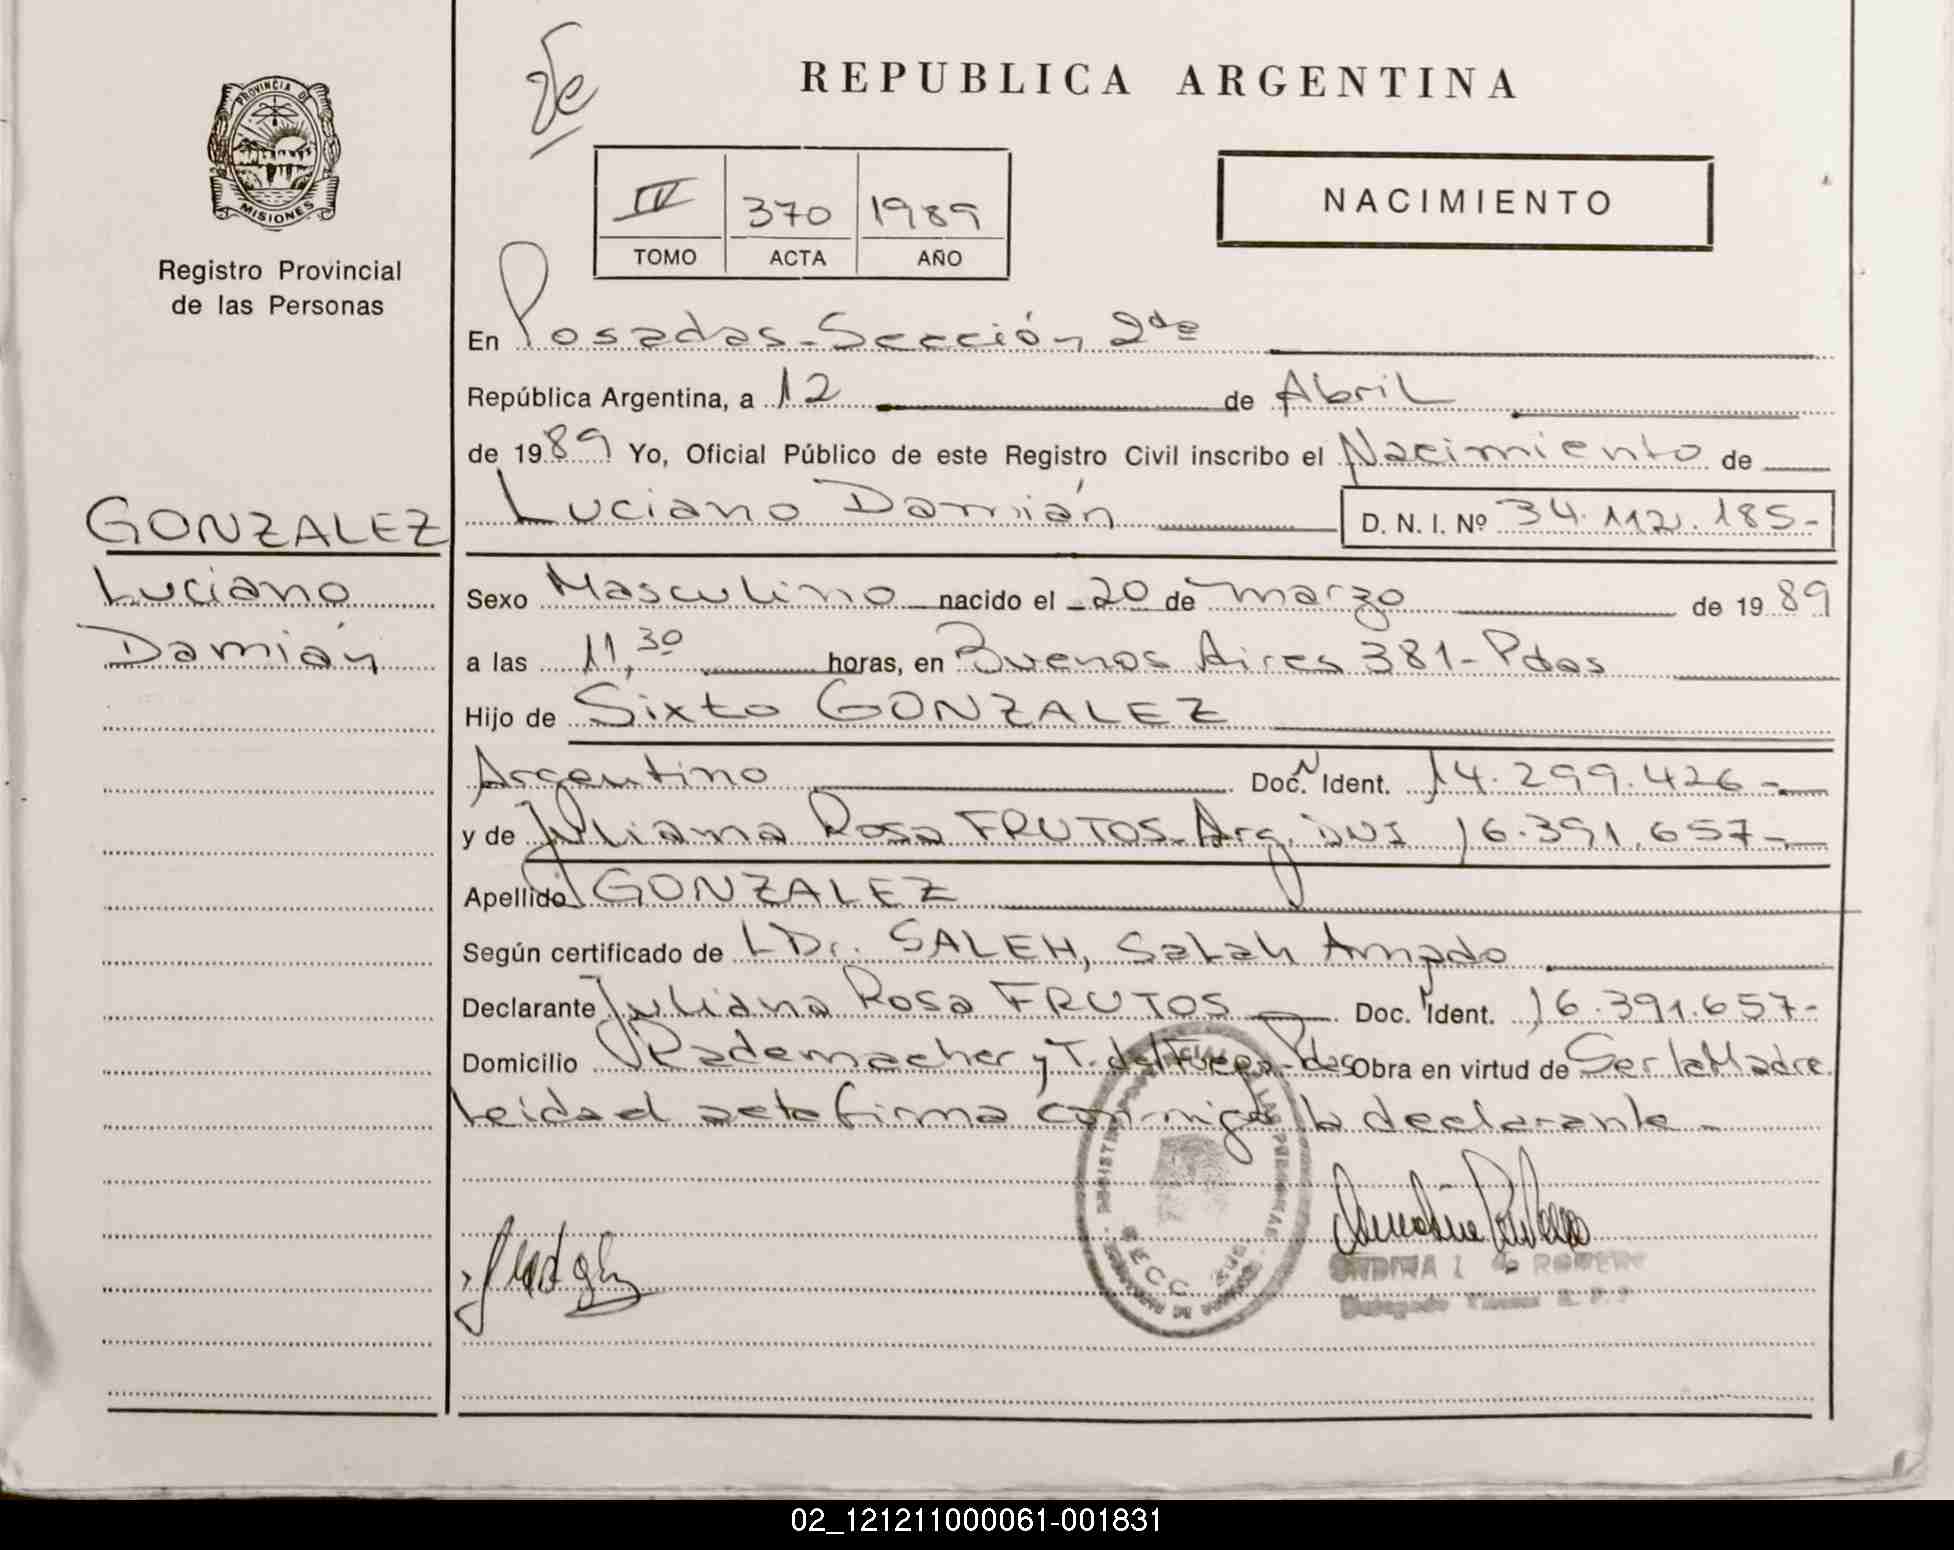 PROVINCIA DE
MISIONES
Registro Provincial
de las Personas
REPUBLICA ARGENTINA
IV 370 1989
TOMO ACTA AÑO
NACIMIENTO
En Posadas-Sección 2da
República Argentina, a 12 de Abril
de 1989 Yo, Oficial Público de este Registro Civil inscribo el Nacimiento de
Luciano Damián D. N. I. Nº 34.112.185-
GONZALEZ
Luciano
Damián
Sexo Masculino nacido el 20 de marzo de 1989
a las 11,30 horas, en Buenos Aires 381-Pdas
Hijo de Sixto GONZALEZ
Argentino Doc. Ident. 14.299.426-
y de Juliana Rosa FRUTOS-Arg. DNI 16.391.657-
Apellido GONZALEZ
Según certificado de LDr. SALEH, Salah Amado
Declarante Juliana Rosa FRUTOS Doc. Ident. 16.391.657-
Domicilio Rademacher y T. del Fuego-Pdas Obra en virtud de Ser la Madre
Leida el acta firma conmigo la declarante-
SECC
ROMERO
02_121211000061-001831